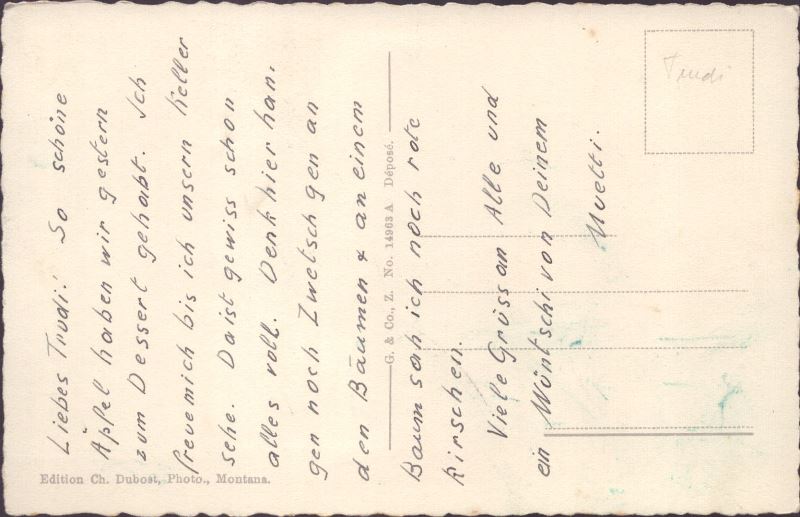 Liebes Trudi! So schöne
Äpfel haben wir gestern
zum Dessert gehabt. Ich
freue mich bis ich unsern Keller
sehe. Da ist gewiss schon
alles voll. Denk hier han-
gen noch Zwetschgen an
den Bäumen & an einem
Baum sah ich noch rote
Kirschen.
Viele Grüss an Alle und
ein Müntschi von Deinem
Muetti.
Trudi
G. & Co., Z. No. 14963 A Déposé.
Edition Ch. Dubost, Photo., Montana.